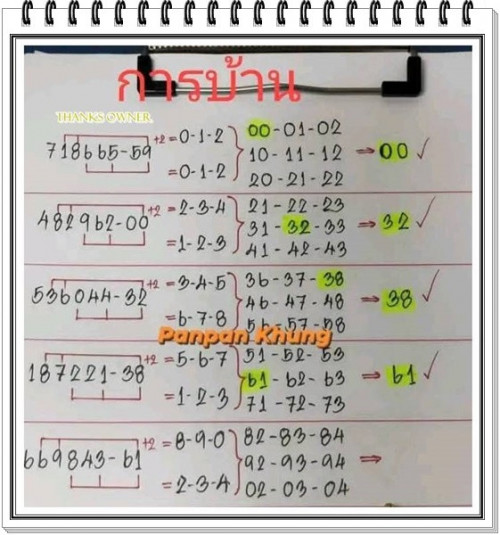 การบ้าน
THANKS OWNER.
+2 = 0-1-2 00-01-02
718665-59 10-11-12 ⇒ 00 ✓
= 0-1-2 20-21-22
+2 = 2-3-4 21-22-23
482962-00 31-32-33 ⇒ 32 ✓
= 1-2-3 41-42-43
+2 = 3-4-5 36-37-38
536044-32 46-47-48 ⇒ 38 ✓
= 6-7-8 57-58
Panpan Khung
+2 = 5-6-7 51-52-53
187221-38 61-62-63 ⇒ 61 ✓
= 1-2-3 71-72-73
+2 = 8-9-0 82-83-84
669843-61 92-93-94 ⇒
= 2-3-4 02-03-04